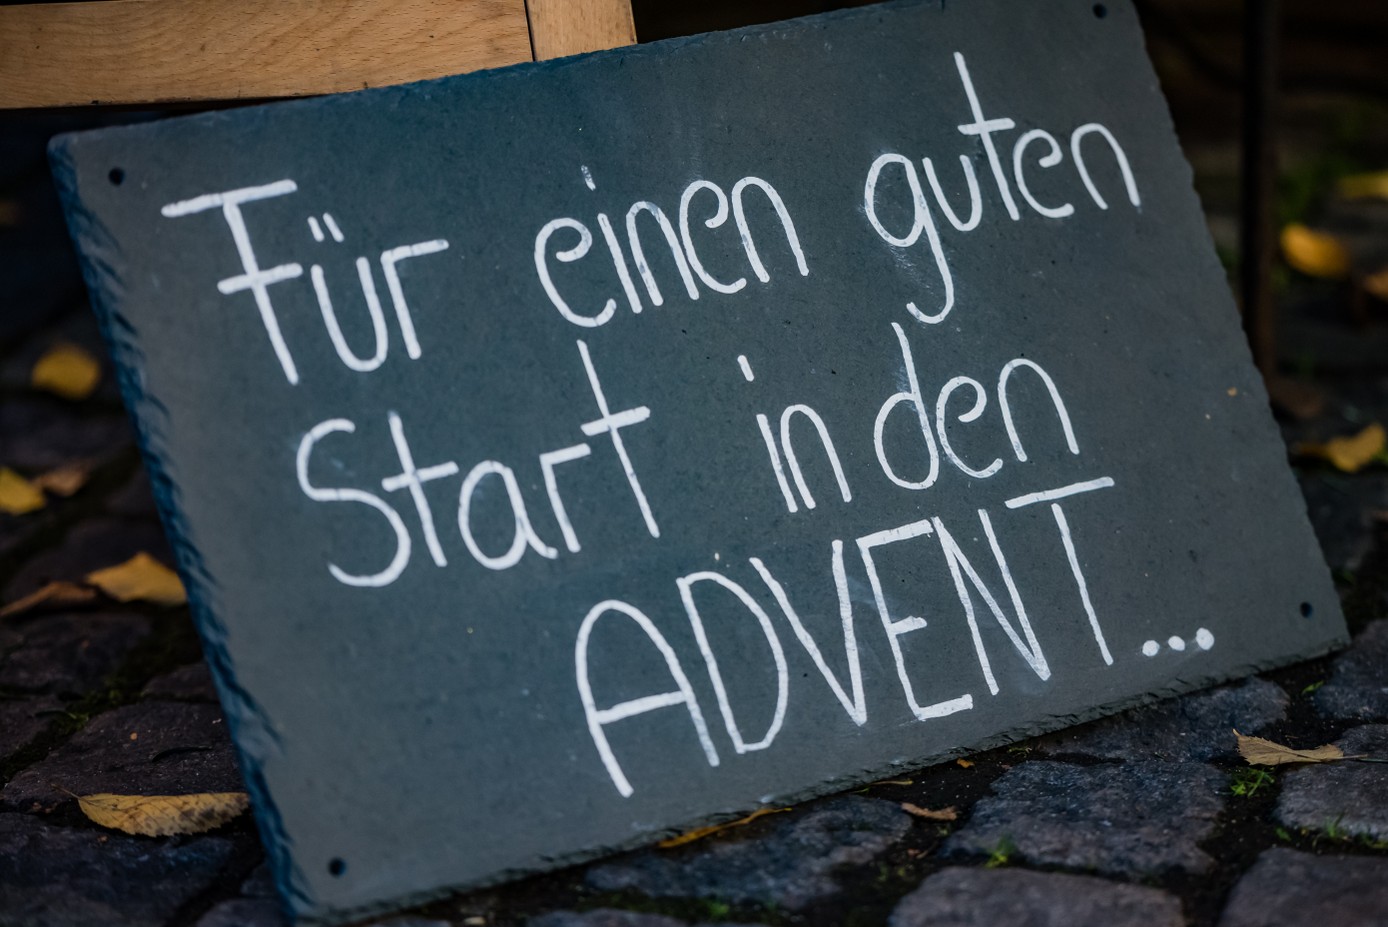 Für einen guten
Start in den
ADVENT...